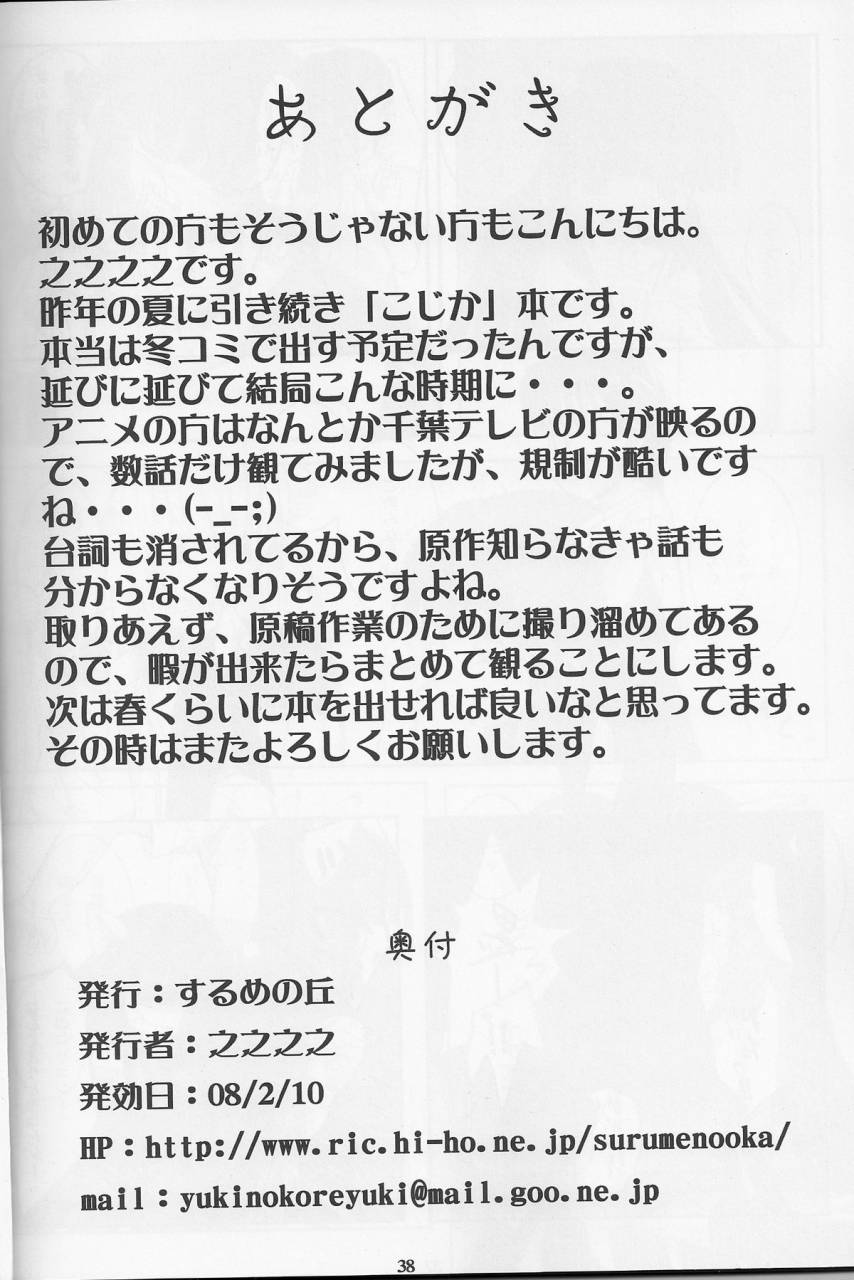 あとがき
初めての方もそうじゃない方もこんにちは。
之之之之です。
昨年の夏に引き続き「こじか」本です。
本当は冬コミで出す予定だったんですが、
延びに延びて結局こんな時期に・・・。
アニメの方はなんとか千葉テレビの方が映るの
で、数話だけ観てみましたが、規制が酷いです
ね・・・(-_-;)
台詞も消されてるから、原作知らなきゃ話も
分からなくなりそうですよね。
取りあえず、原稿作業のために撮り溜めてある
ので、暇が出来たらまとめて観ることにします。
次は春くらいに本を出せれば良いなと思ってます。
その時はまたよろしくお願いします。
奥付
発行：するめの丘
発行者：之之之之
発効日：08/2/10
HP：http://www.ric.hi-ho.ne.jp/surumenooka/
mail：yukinokoreyuki@mail.goo.ne.jp
38